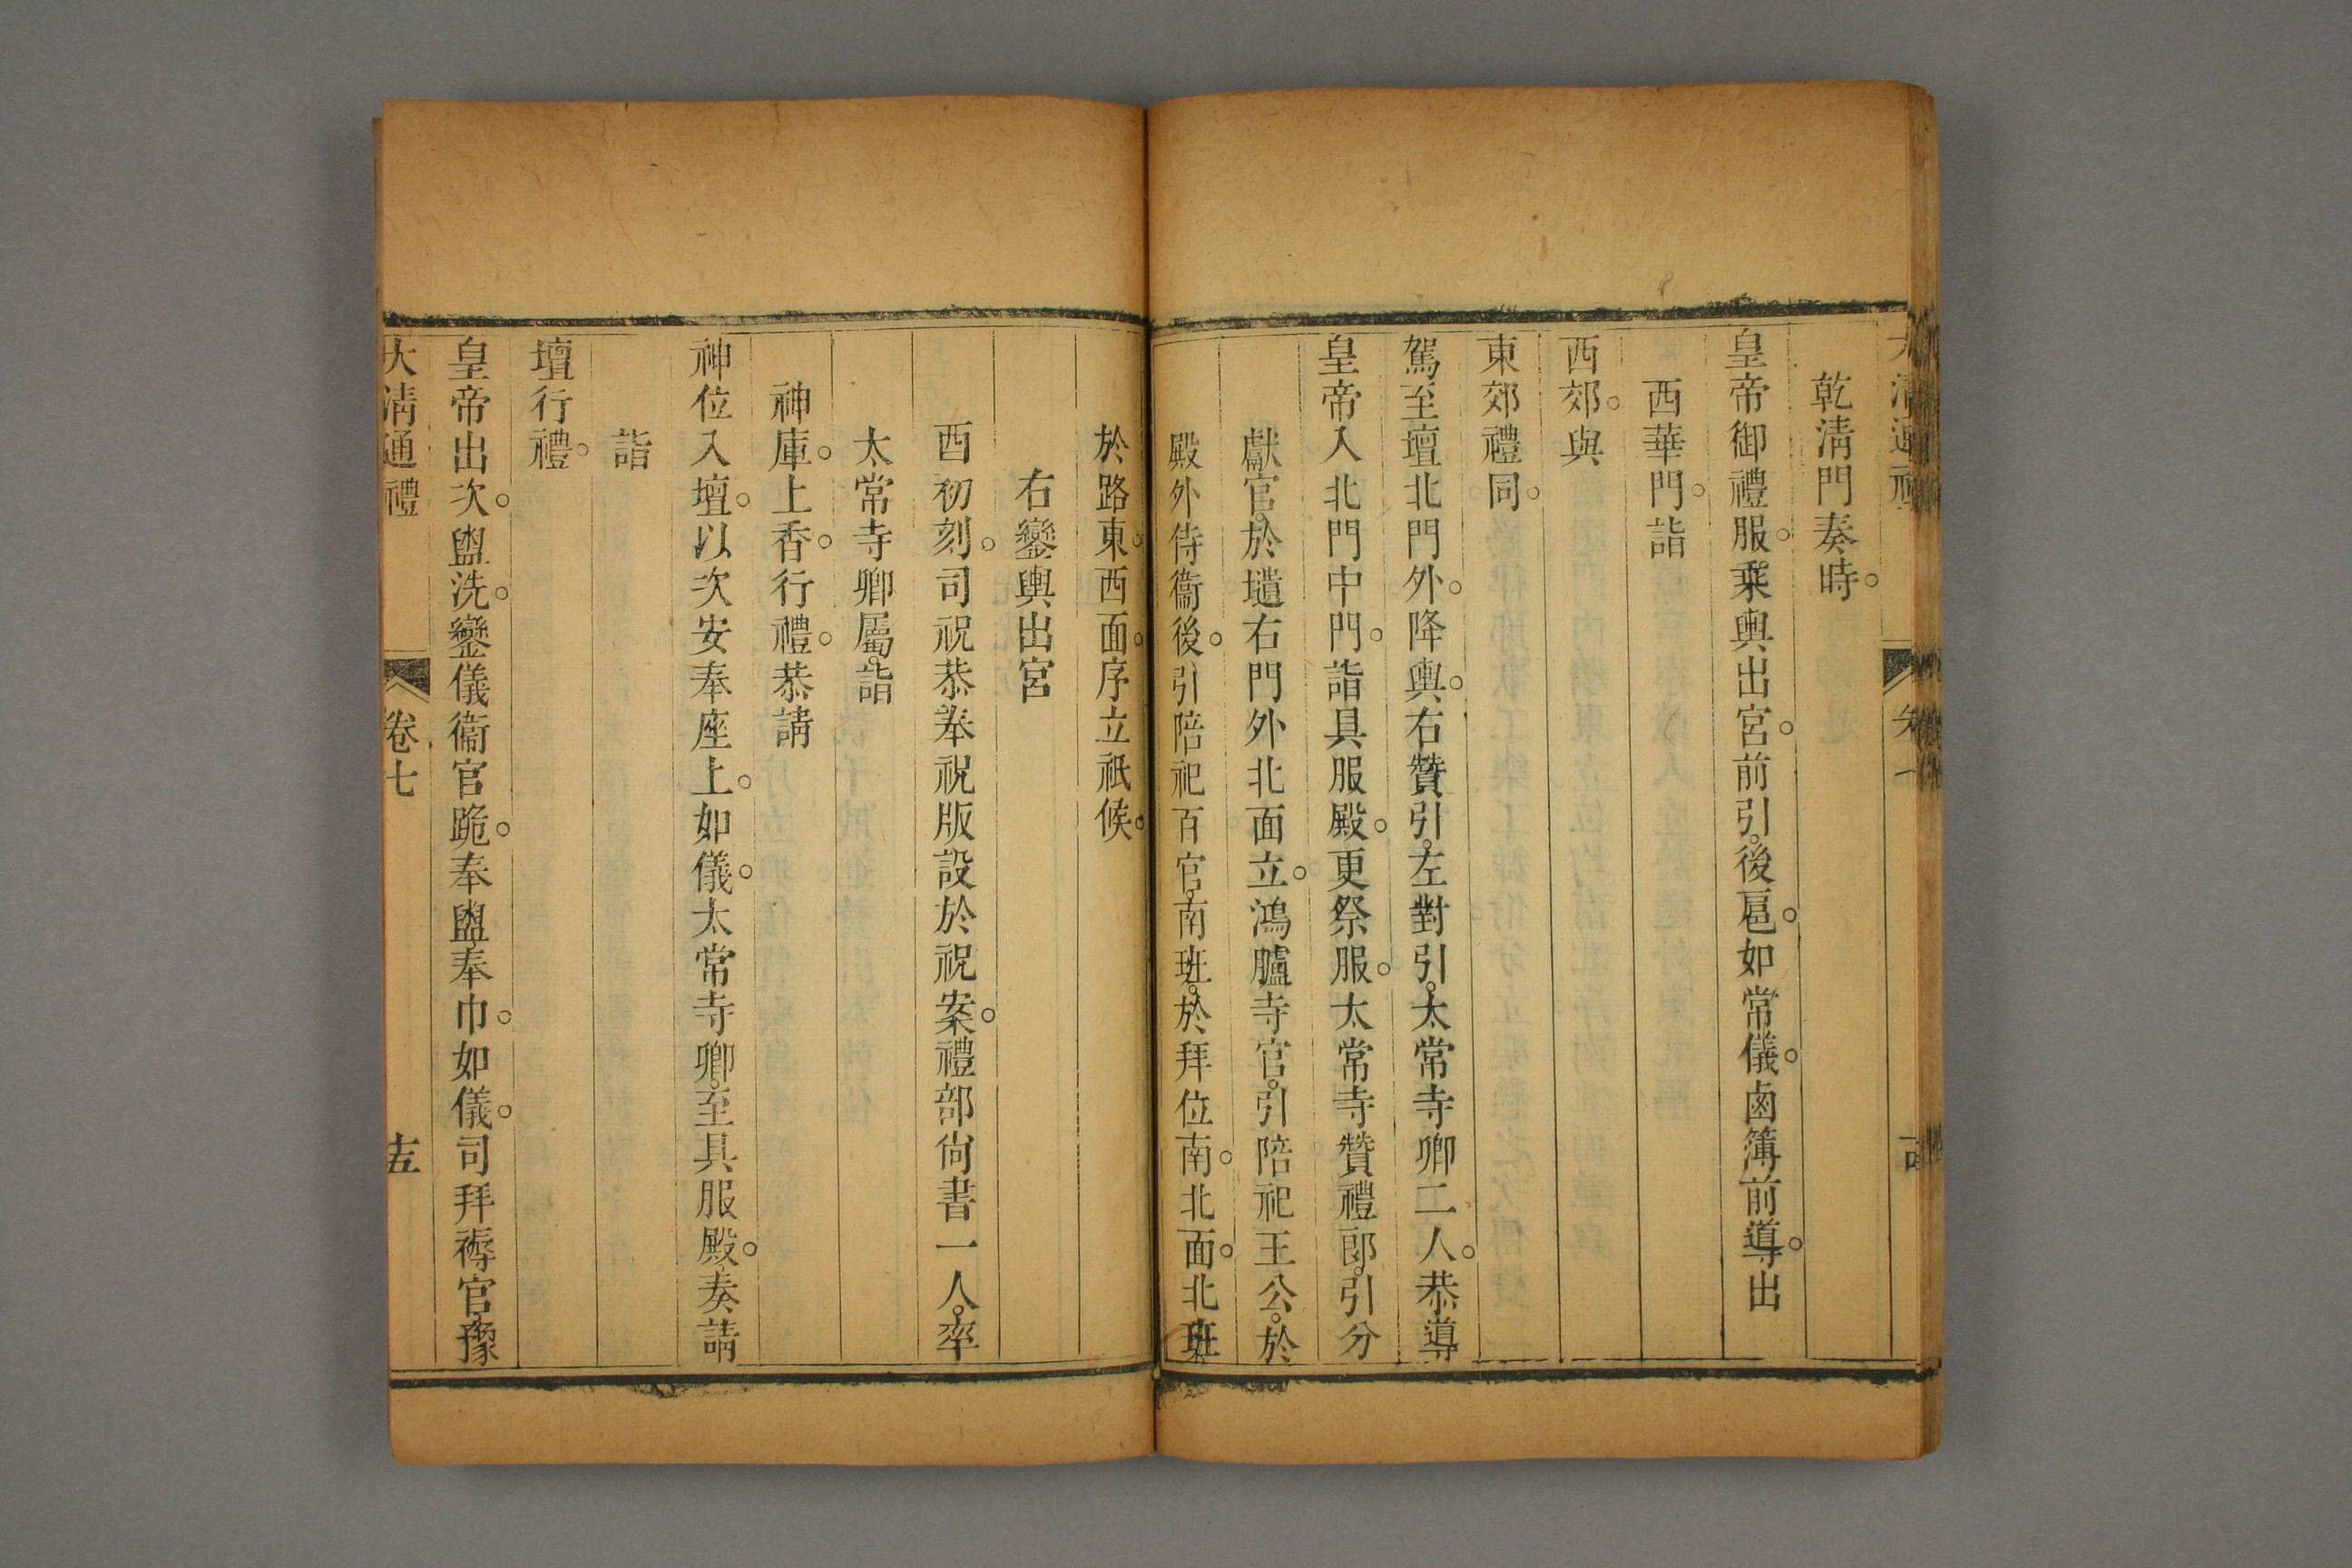 乾淸門奏時。
皇帝御禮服。乘輿出宮。前引。後扈。如常儀。鹵簿前導。出
西華門。詣
西郊。與
東郊禮同。
駕至壇北門外。降輿。右贊引。左對引。太常寺卿二人。恭導
皇帝入北門中門。詣具服殿。更祭服。太常寺贊禮郎。引分
獻官。於壝右門外北面立。鴻臚寺官。引陪祀王公。於
殿外侍衞後。引陪祀百官。南班。於拜位南。北面。北班
於路東。西面。序立祇候。
右鑾輿出宮
酉初刻。司祝恭奉祝版設於祝案。禮部尙書一人。率
太常寺卿屬。詣
神庫。上香。行禮。恭請
神位入壇。以次安奉座上。如儀。太常寺卿。至具服殿。奏請
詣
壇行禮。
皇帝出次。盥洗。鑾儀衞官跪。奉盥。奉巾。如儀。司拜褥官。豫
大淸通禮 卷七 十五